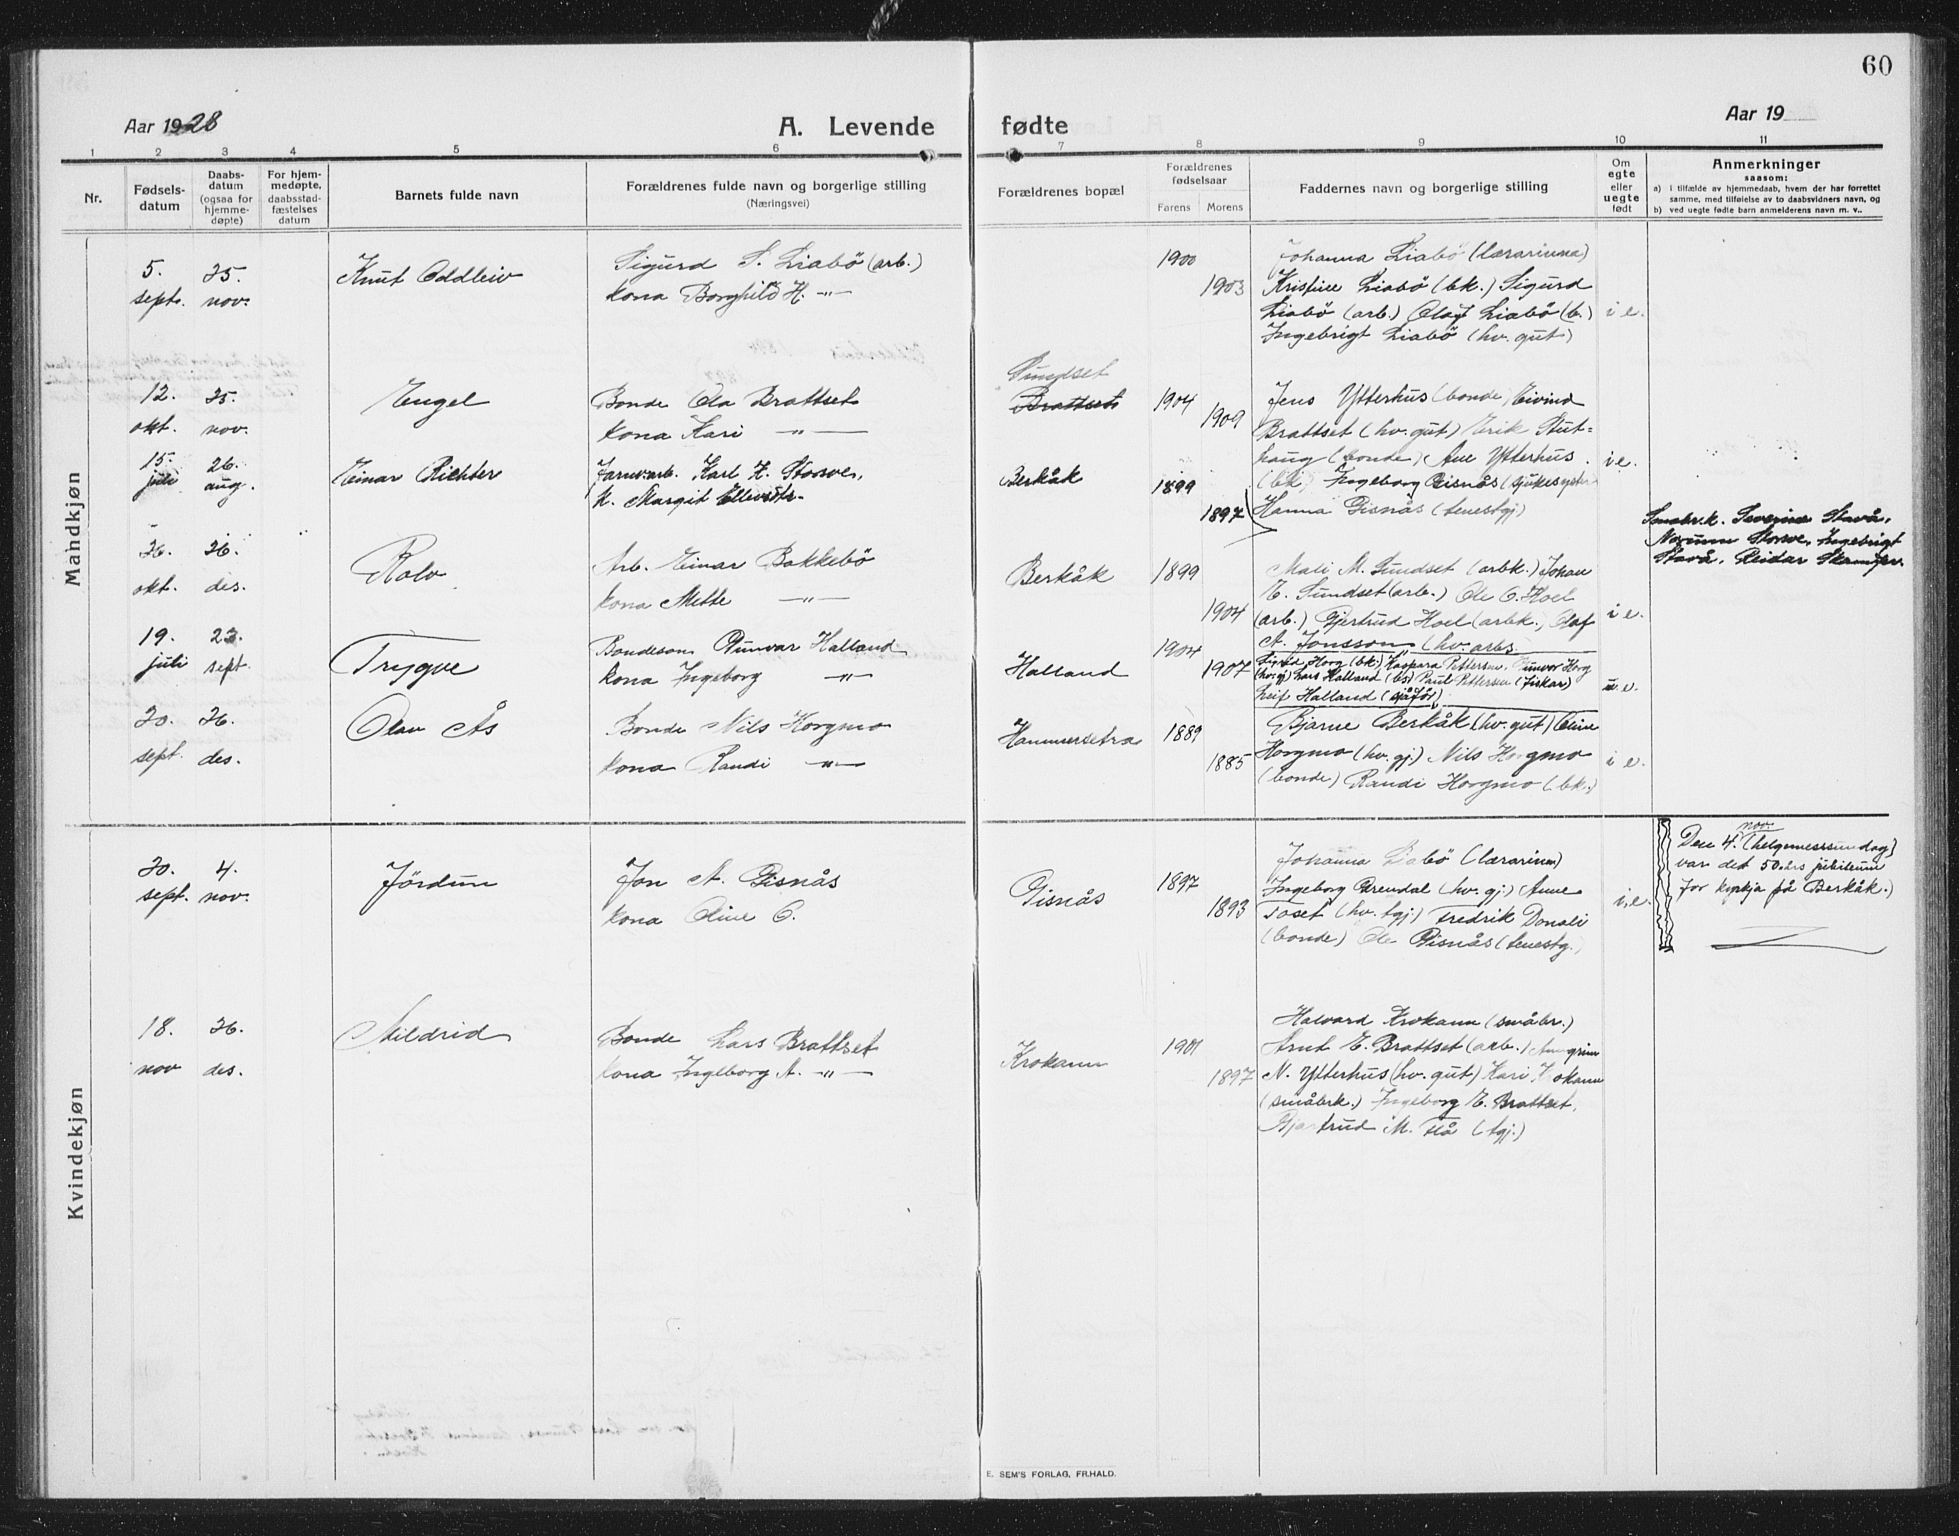 60
Aar 1928
A. Levende
fødte
Aar 19
1 2 3 4 5 6 7 8 9 10 11
Nr.
Fødsels-
datum
Daabs-
datum
(ogsaa for
hjemme-
døpte)
For hjem-
medøpte,
daabsstad-
fæstelses
datum
Barnets fulde navn
Forældrenes fulde navn og borgerlige stilling
(Næringsvei)
Forældrenes bopæl
Forældrenes
fødselsaar
Farens Morens
Faddernes navn og borgerlige stilling
Om
egte
eller
uegte
født
Anmerkninger
saasom:
a) i tilfælde av hjemmedaab, hvem der har forrettet
samme, med tilføielse av to daabsvidners navn, og
b) ved uegte fødte barn anmelderens navn m. v..
Mandkjøn
5. sept. 25. nov.
Knut Oddleiv
Sigurd S. Liabö (arb.)
kona Borghild H. -"-
1900
1903
Johanna Liabö (lærarinna)
Liabö (bk.) Sigurd
Liabö (arb.) Olaf Liabö (b.)
Ingebrigt Liabö (hv. gut)
i e.
12. okt. 25. nov.
Engel
Bonde Ola Brattset
kona Kari -"-
Sundset
Brattset
1904
1909
Jens Ytterhus (bonde) Eivind
Brattset (hv. gut) Erik Stut=
haug (bonde) Ane Ytterhus
(bk.) Ingeborg Gisnås (sjukesyster)
Hanna Gisnås (tenestgj)
i e.
15. juli 26. aug.
Einar Richter
Jarnvarb. Karl K. Storve,
k. Margit
Berkåk
1899
1897
Smabr.k. Severine Stavå,
Storve, Ingebrigt
Stavå, Reidar
26. okt. 26. des.
Rolv
Arb. Einar Bakkebö
kona Mette -"-
Berkåk
1899
1904
Mali M. Sundset (arbk.) Johan
E. Sundset (arb.) Ole O. Hoel
(arb.) Gjertrud Hoel (arbk.) Olaf
A. Jonsson (hv. arb.
i e.
19. juli 23. sept.
Trygve
Bondeson Gunvar Halland
kona Ingeborg -"-
Halland
1904
1907
Sigrid Horg (bk.) Kaspara Pettersen, Gunvor Horg
(hv.gj) Lars Halland (bs) Paul Pettersen (fiskar)
Leif Halland (sjåför)
e.
30. sept. 26. des.
Olav Ås
Bonde Nils Horgmo
kona Randi -"-
Hammersetra
1889
1885
Bjarne Berkåk (hv. gut) Oline
Horgmo (hv. gj.) Nils Horgmo
(bonde) Randi Horgmo (bk.)
i e.
Kvindekjøn
30. sept. 4. nov.
Jördun
Jon A. Gisnås
kona Oline O.
Gisnås
1897
1893
Johanna Liabö (lærarinna)
Ingeborg Grendal (hv. gj.) Anne
Toset (hv. tgj.) Fredrik Donali
(bonde) Ole Gisnås (tenestg.)
i. e.
nov.
Den 4. (helgemessundag)
var det 50.års jubileum
for kyrkja på Berkåk.)
18. nov 26. des.
Mildrid
Bonde Lars Brattset
kona Ingeborg A. -"-
Krokann
1901
1897
Halvard Krokann (småbr.)
Arnt E. Brattset (arb.) Arngrim
N. Ytterhus (hv. gut) Kari Krokann
(småbrk.) Ingeborg E. Brattset,
Gjartrud M. Flå (tgj.)
E. SEM'S FORLAG, FR.HALD.